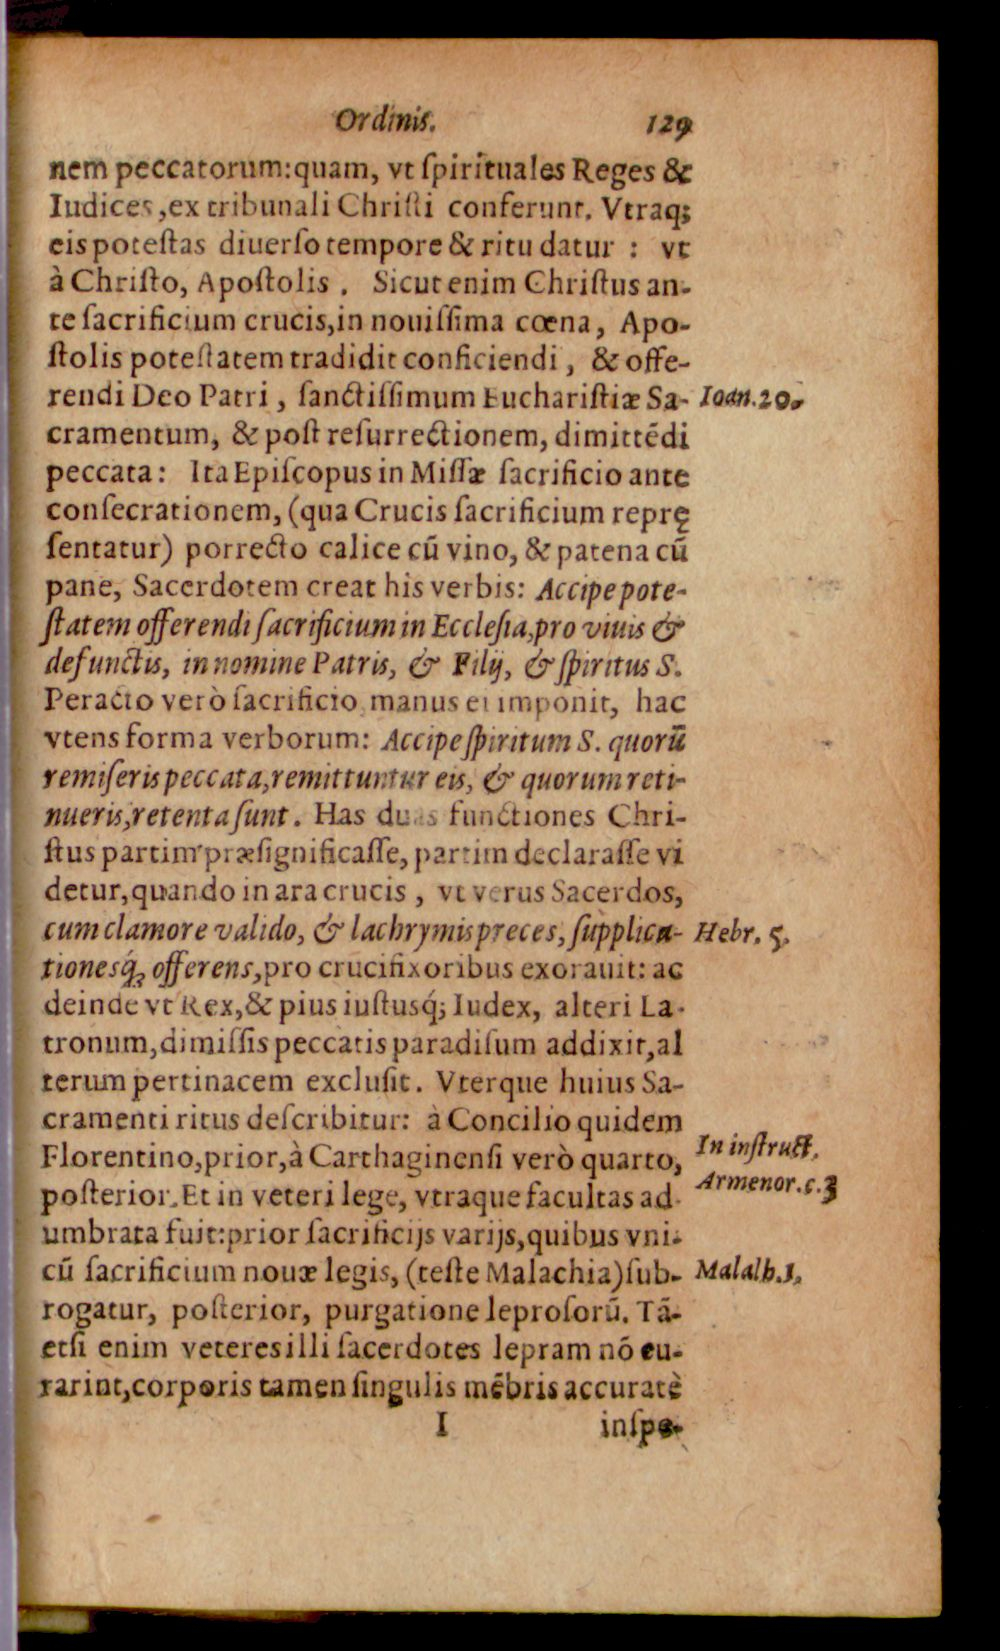 Ordinis. 129
nem peccatorum: quam, vt ſpirituales Reges &
Iudices, ex tribunali Chriſti conferunt. Vtraq;
eis poteſtas diuerſo tempore & ritu datur : vt
à Chriſto, Apoſtolis . Sicut enim Chriſtus an-
te ſacrificium crucis, in nouiſſima cœna, Apo-
ſtolis poteſtatem tradidit conficiendi, & offe-
rendi Deo Patri, ſanctiſſimum Euchariſtiæ Sa- Ioan. 20.
cramentum, & poſt reſurrectionem, dimittēdi
peccata: Ita Epiſcopus in Miſſæ ſacrificio ante
conſecrationem, (qua Crucis ſacrificium reprę
ſentatur) porrecto calice cū vino, & patena cū
pane, Sacerdotem creat his verbis: Accipe pote-
ſtatem offerendi ſacrificium in Eccleſia, pro viuis &
defunctis, in nomine Patris, & Filij, & ſpiritus S.
Peracto verò ſacrificio manus ei imponit, hac
vtens forma verborum: Accipe ſpiritum S. quorū
remiſeris peccata, remittuntur eis, & quorum reti-
nueris, retenta ſunt. Has duas functiones Chri-
ſtus partim præſignificaſſe, partim declaraſſe vi
detur, quando in ara crucis, vt verus Sacerdos,
cum clamore valido, & lachrymis preces, ſupplica- Hebr. 5.
tionesq́; offerens, pro crucifixoribus exorauit: ac
deinde vt Rex, & pius iuſtusq́; Iudex, alteri La-
tronum, dimiſſis peccatis paradiſum addixit, al
terum pertinacem excluſit. Vterque huius Sa-
cramenti ritus deſcribitur: à Concilio quidem
Florentino, prior, à Carthaginenſi verò quarto, In inſtruct.
poſterior. Et in veteri lege, vtraque facultas ad- Armenor. c. 3
umbrata fuit: prior ſacrificijs varijs, quibus vni-
cū ſacrificium nouæ legis, (teſte Malachia) ſub- Malalh. 1,
rogatur, poſterior, purgatione leproſorū. Tā-
etſi enim veteres illi ſacerdotes lepram nō cu-
rarint, corporis tamen ſingulis mēbris accuratè
I inſpe-